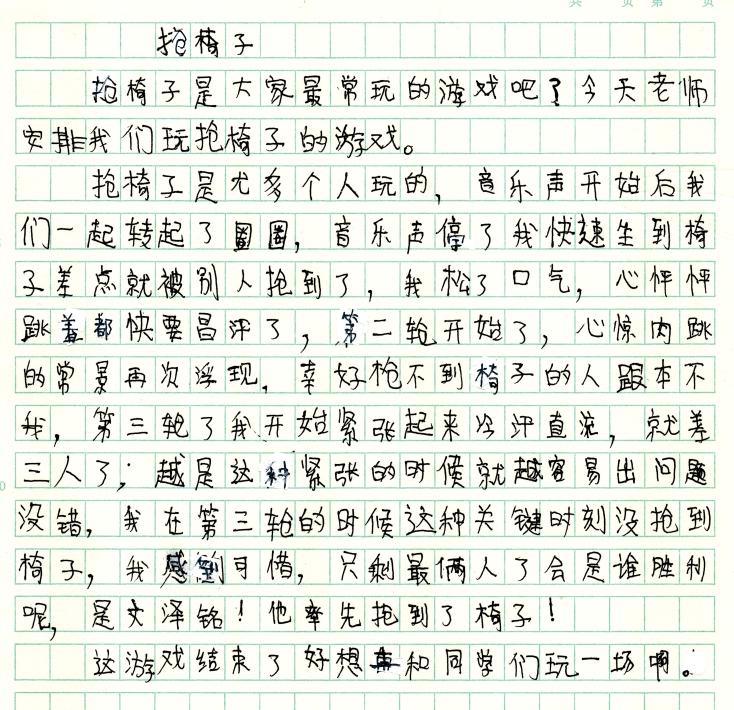 共 页 第 页
抢椅子
抢椅子是大家最常玩的游戏吧？今天老师
安排我们玩抢椅子的游戏。
抢椅子是尤多个人玩的，音乐声开始后我
们一起转起了圈圈，音乐声停了我快速坐到椅
子差点就被别人抢到了，我松了口气，心怦怦
跳差都快要冒汗了，第二轮开始了，心惊肉跳
的常景再次浮现，幸好枪不到椅子的人跟本不
我，第三轮了我开始紧张起来冷汗直流，就差
三人了；越是这种紧张的时候就越容易出问题
没错，我在第三轮的时候这种关键时刻没抢到
椅子，我感到可惜，只剩最俩人了会是谁胜利
呢，是文泽铭！他率先抢到了椅子！
这游戏结束了好想再和同学们玩一场啊。